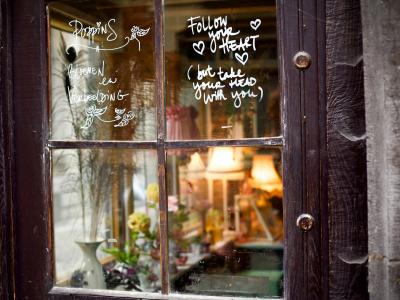 Poppins
BLOEMEN
en
VERBEELDING
FOLLOW
your
HEART
(but take
your HEAD
with you)